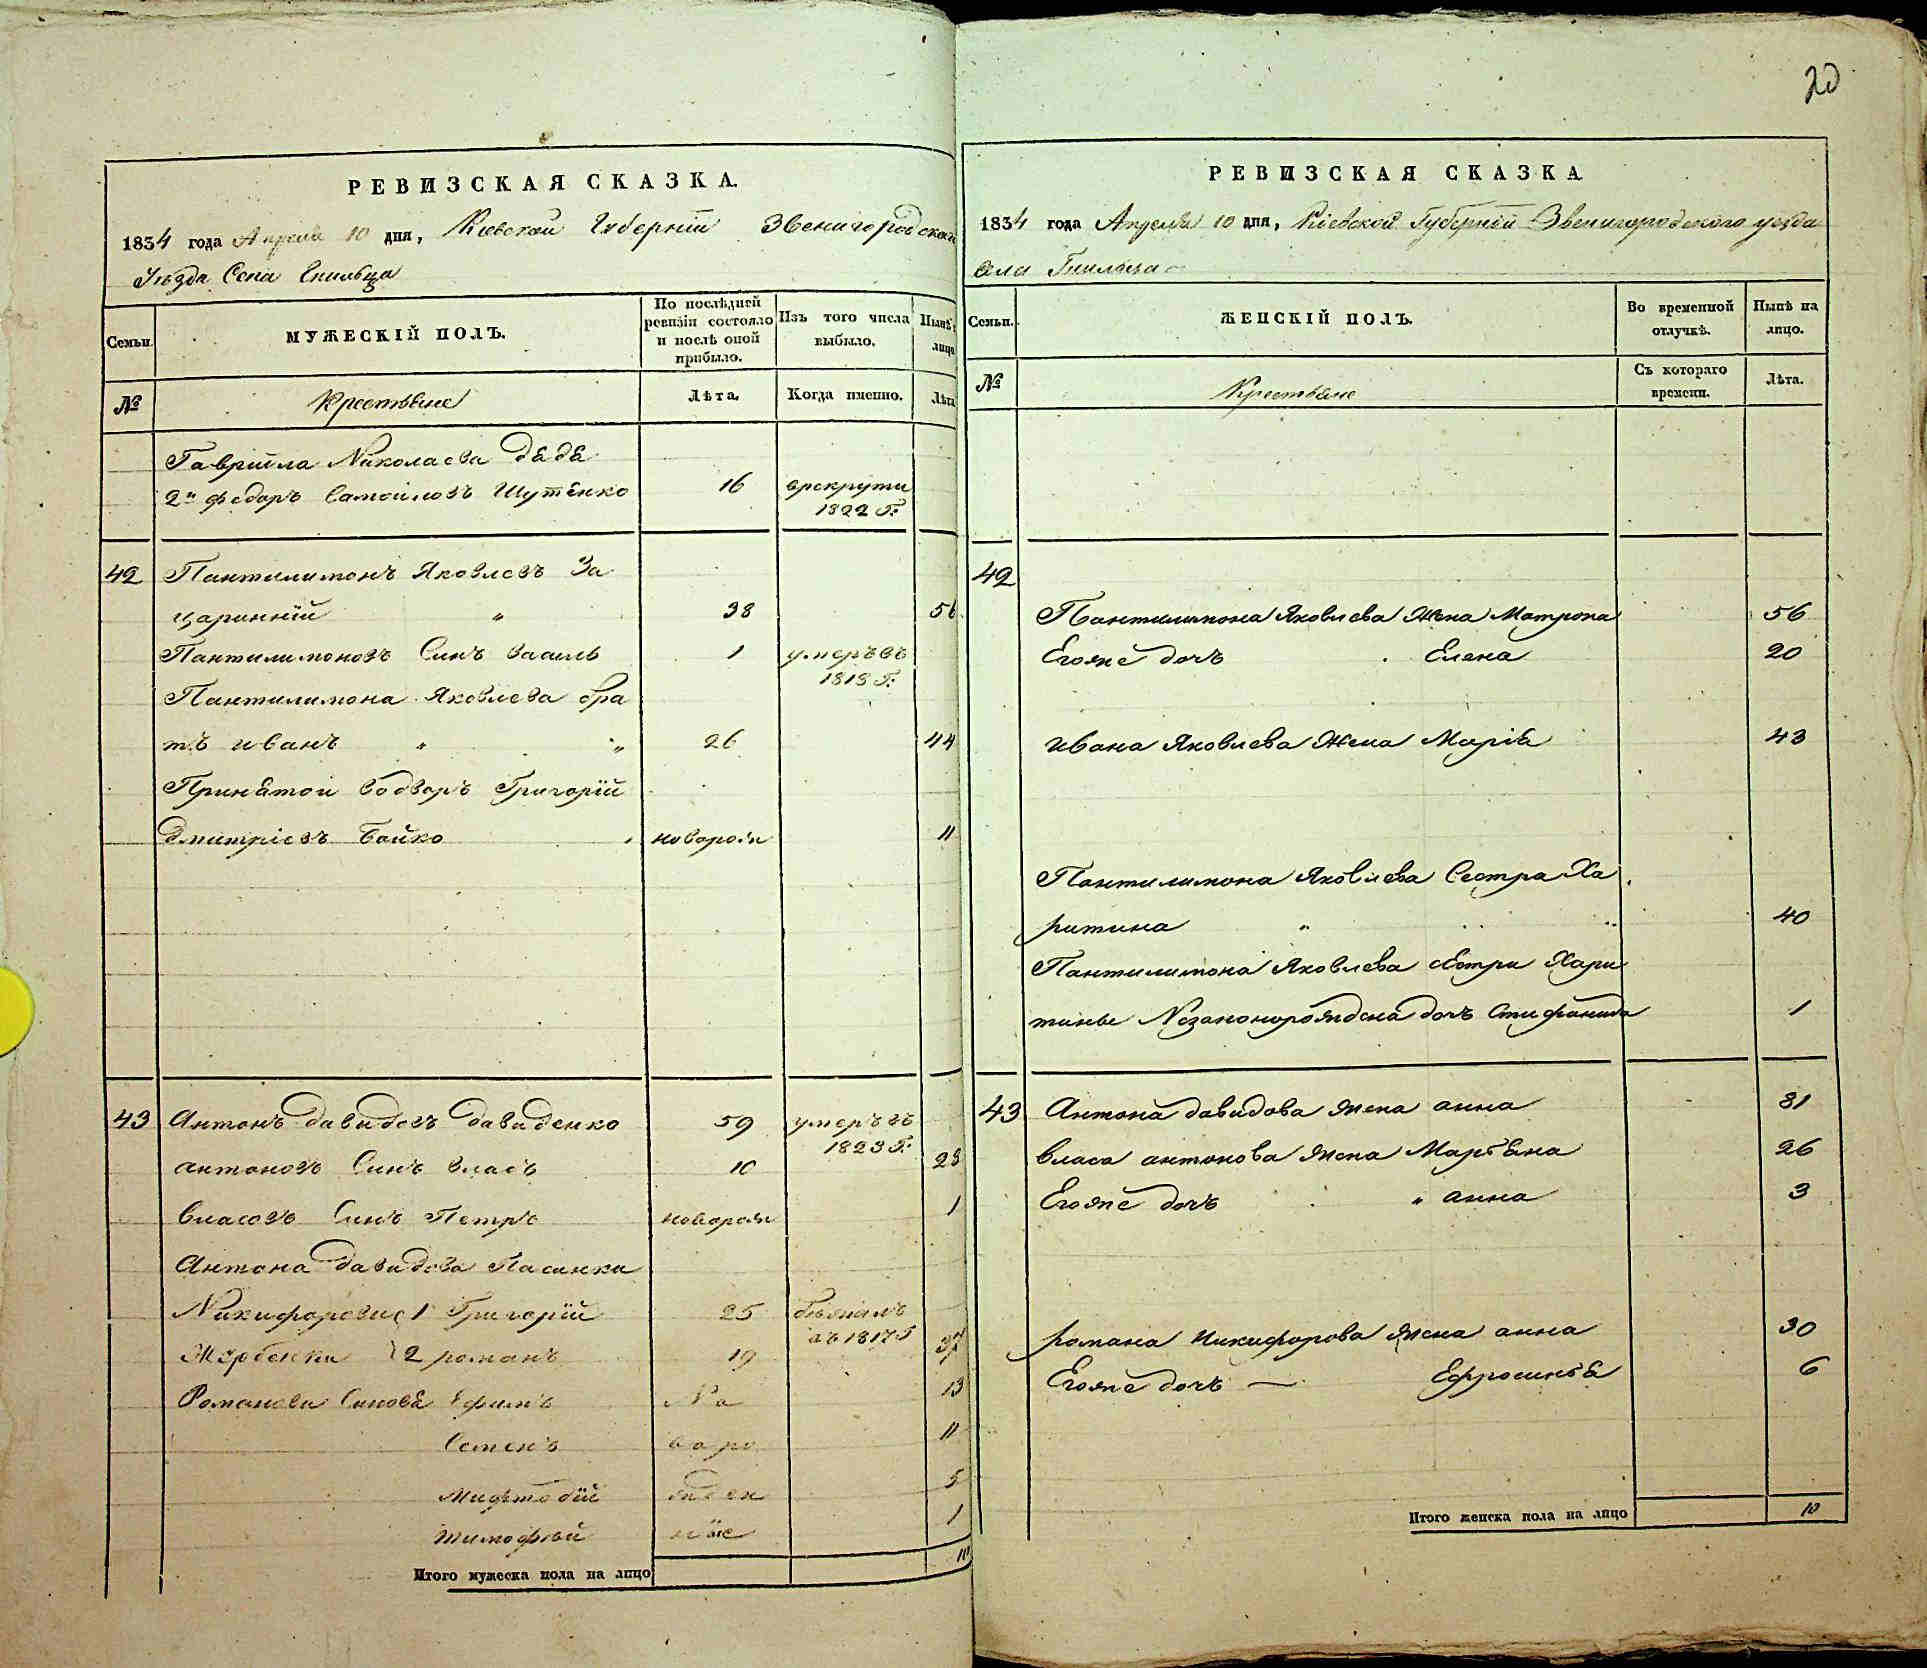 20
РЕВИЗСКАЯ СКАЗКА.
1834 года Апреля 10 дня, Киевской Губернїи Звенигородскаго
Уезда Села Гнильца
Семьи.
МУЖЕСКІЙ ПОЛЪ.
По послѣдней ревизіи состояло и послѣ оной прибыло.
Изъ того числа выбыло.
Нынѣ лицо
№
Крестьяне
Лѣта.
Когда именно.
Лѣта
Гаврїила Николаева дядя
2й федоръ Самойловъ Шутенко 16 врекрути
1822 Г.
42 Пантилимонъ Яковлевъ За
царинній " 38 56
Пантилимоновъ Синъ василь 1 умеръ въ
1818 Г.
Пантилимона Яковлева бра
тъ иванъ " " 26 44
Принятои водворъ Григорїй
Дмитрїевъ Бойко " новорож 11
43 Антонъ давидовъ давиденко 59 умеръ въ
1823 Г.
антоновъ Синъ власъ 10 28
власовъ Синъ Петръ новорож 1
Антона давидова Пасинки
Никифоровис 1 Григорїй 25 бежалъ
въ 1817 Г
2 романъ 19 37
Романови Синовя Ефимъ Но 13
Семенъ воро 11
Мифтодїй жден 5
тимофей нїе 1
Итого мужеска пола на лицо 10
РЕВИЗСКАЯ СКАЗКА
1834 года Апреля 10 дня, Кїевской Губернїи Звенигородского уезда
села Гнильца
Семьи.
ЖЕНСКІЙ ПОЛЪ.
Во временной отлучкѣ.
Нынѣ на лицо.
№
Крестьяне
Съ котораго времени.
Лѣта.
42
Пантилимона Яковлева Жена Матрона 56
Егоже дочъ Елена 20
ивана Яковлева Жена Марія 43
Пантилимона Яковлева Сестра Ха
ритина " " 40
Пантилимона Яковлева сестри Хари
тинье Незаконорожденa дочъ Стифанида 1
43 Антона давидова жена анна 81
власа антонова жена Марьяна 26
Егоже дочъ " анна 3
романа Никифорова жена анна 30
Егоже дочъ — Ефросинья 6
Итого женска пола на лицо 10